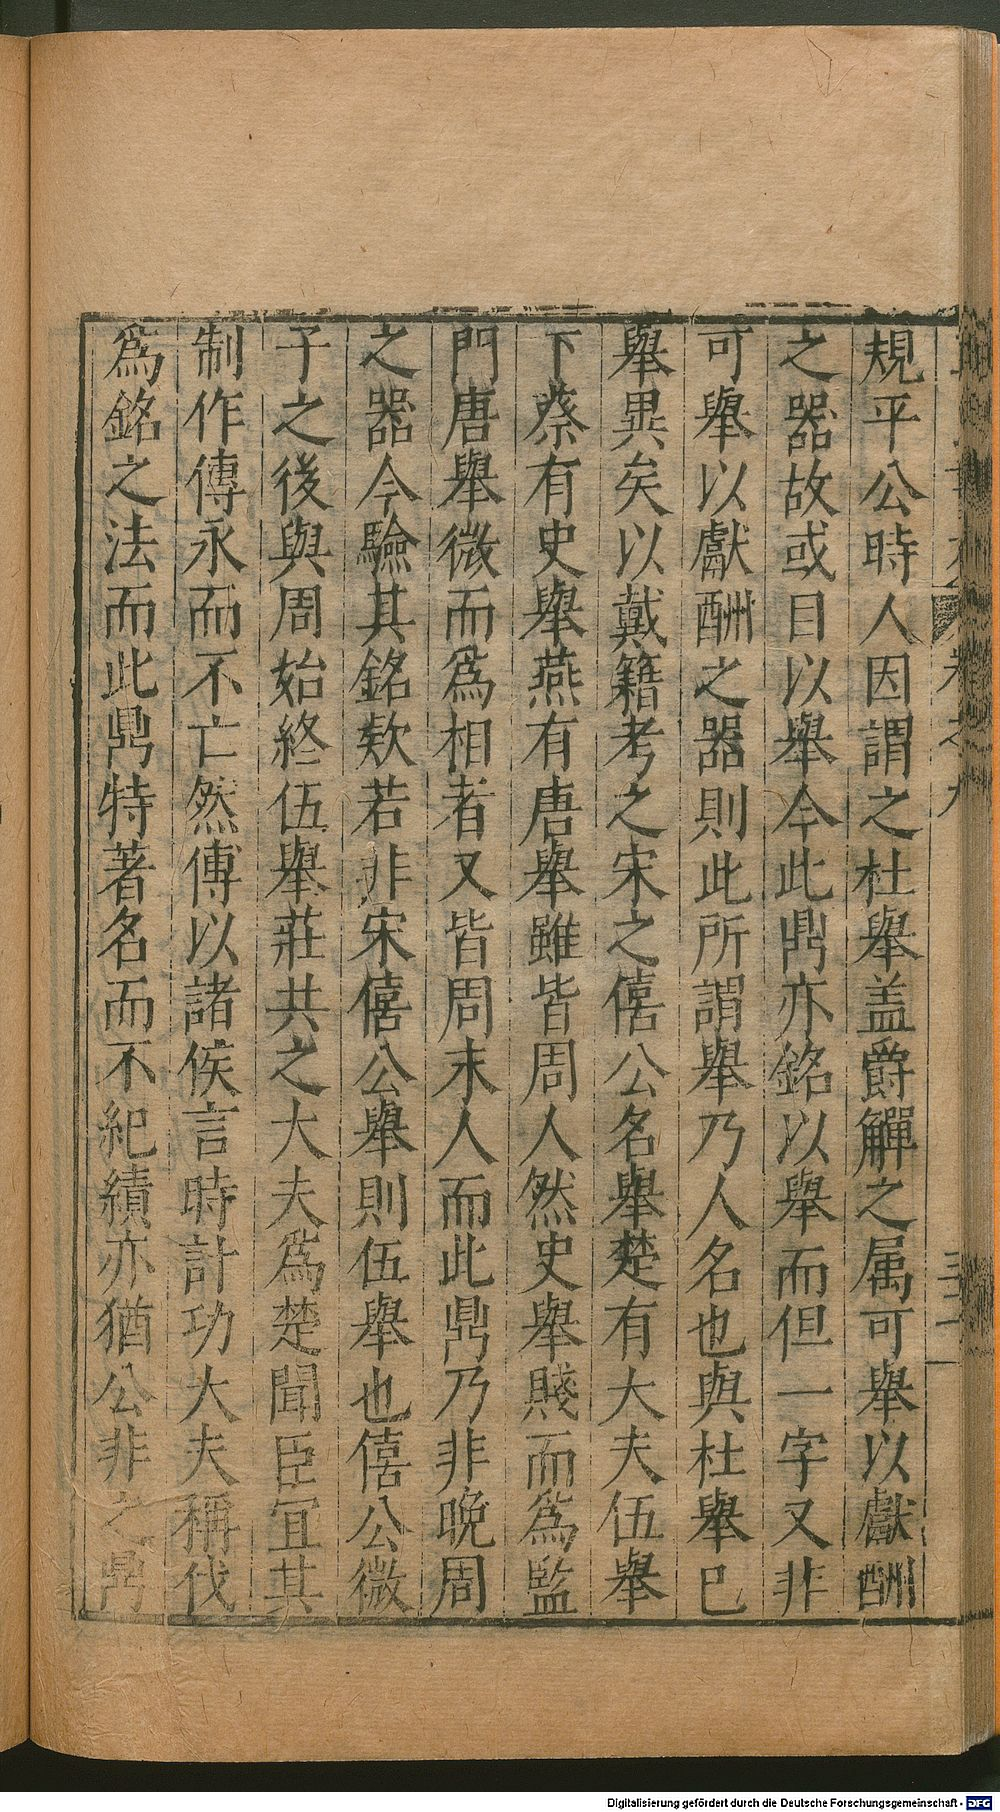 規平公時人因謂之杜舉盖爵觶之属可舉以獻酬
之器故或目以舉今此鼎亦銘以舉而但一字又非
可舉以獻酬之器則此所謂舉乃人名也與杜舉巳
舉異矣以戴籍考之宋之僖公名舉楚有大夫伍舉
下蔡有史舉燕有唐舉雖皆周人然史舉賤而爲監
門唐舉微而爲相者又皆周末人而此鼎乃非晚周
之器今驗其銘欵若非宋僖公舉則伍舉也僖公微
子之後與周始終伍舉莊共之大夫爲楚聞臣宜其
制作傳永而不亡然傳以諸侯言時計功大夫稱伐
爲銘之法而此鼎特著名而不紀績亦猶公非之鼎
卷之九
Digitalisierung gefördert durch die Deutsche Forschungsgemeinschaft - DFG